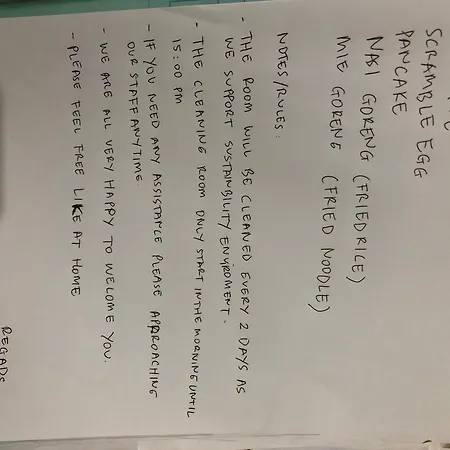 SCRAMBLE EGG
PANCAKE
NASI GORENG (FRIED RICE)
MIE GORENG (FRIED NOODLE)
NOTES/RULES:
- THE ROOM WILL BE CLEANED EVERY 2 DAYS AS
WE SUPPORT SUSTAINBILITY ENVIROMENT.
- THE CLEANING ROOM ONLY START IN THE MORNING UNTIL
15:00 PM
- IF YOU NEED ANY ASSISTANCE PLEASE APPROACHING
OUR STAFF ANYTIME
- WE ARE ALL VERY HAPPY TO WELCOME YOU.
- PLEASE FEEL FREE LIKE AT HOME
REGADS